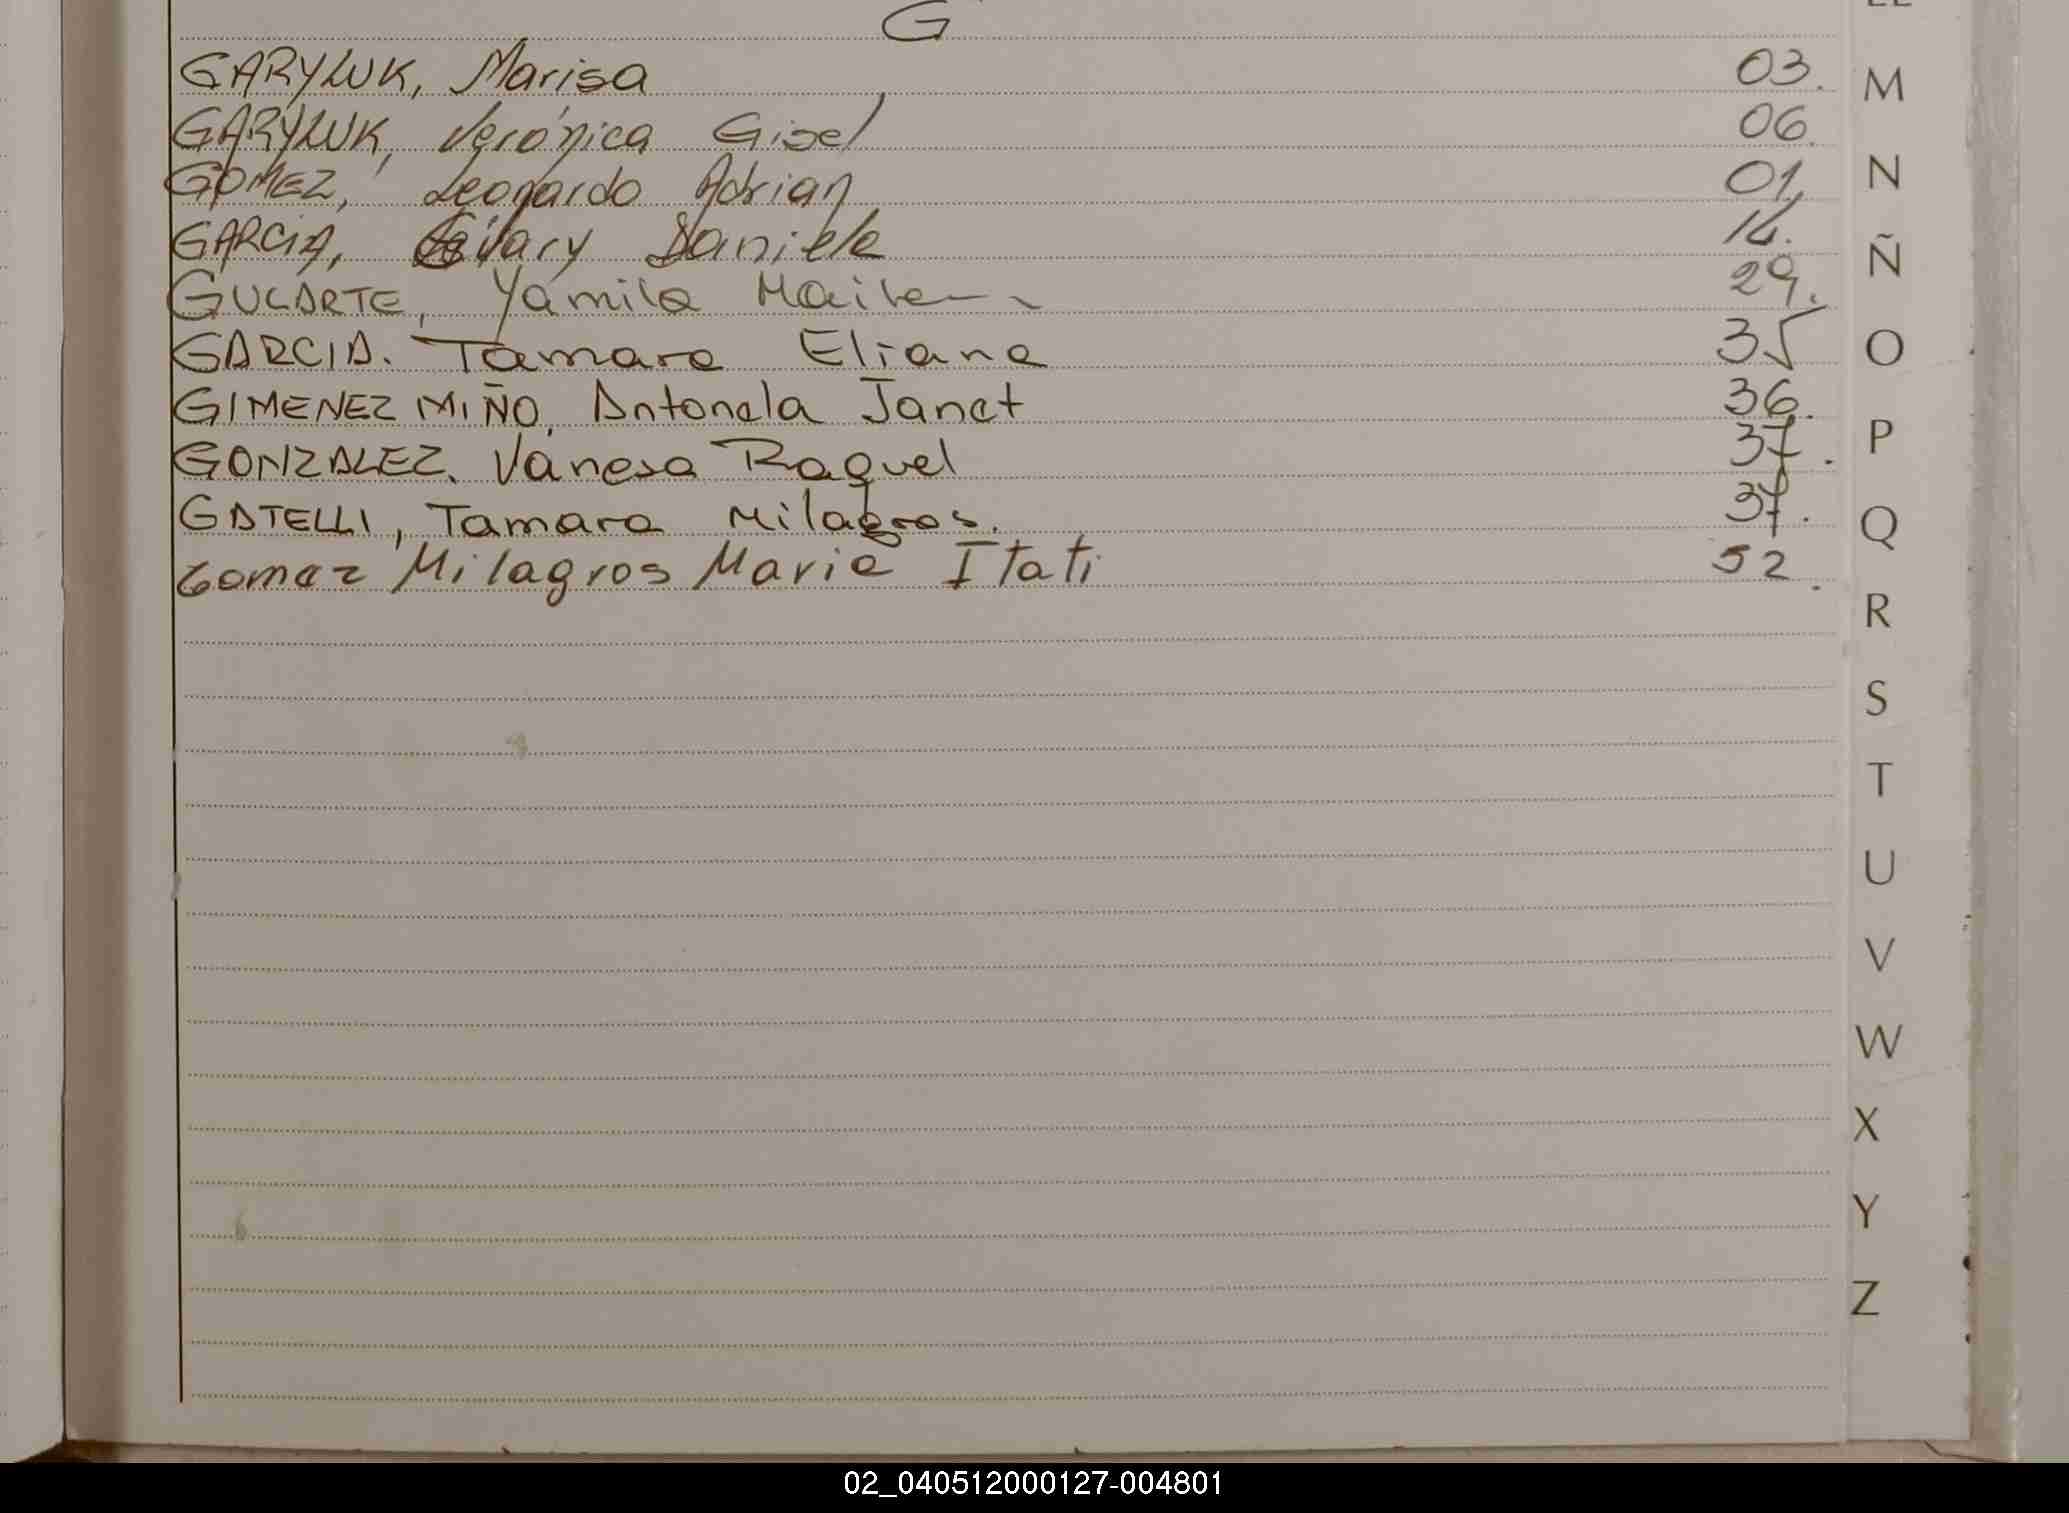 G
GARYLUK, Marisa 03.
GARYLUK, Verónica Gisel 06.
GOMEZ, Leonardo Adrian 01.
GARCIA, Daniela 14.
GULARTE, Yamila Mailen 29.
GARCIA. Tamara Eliana 35
GIMENEZ MIÑO, Antonela Janet 36.
GONZALEZ, Vanesa Raquel 37.
GATELLI, Tamara Milagros. 37.
Gomez Milagros Maria Itati 52.
M
N
Ñ
O
P
Q
R
S
T
U
V
W
X
Y
Z
02_040512000127-004801